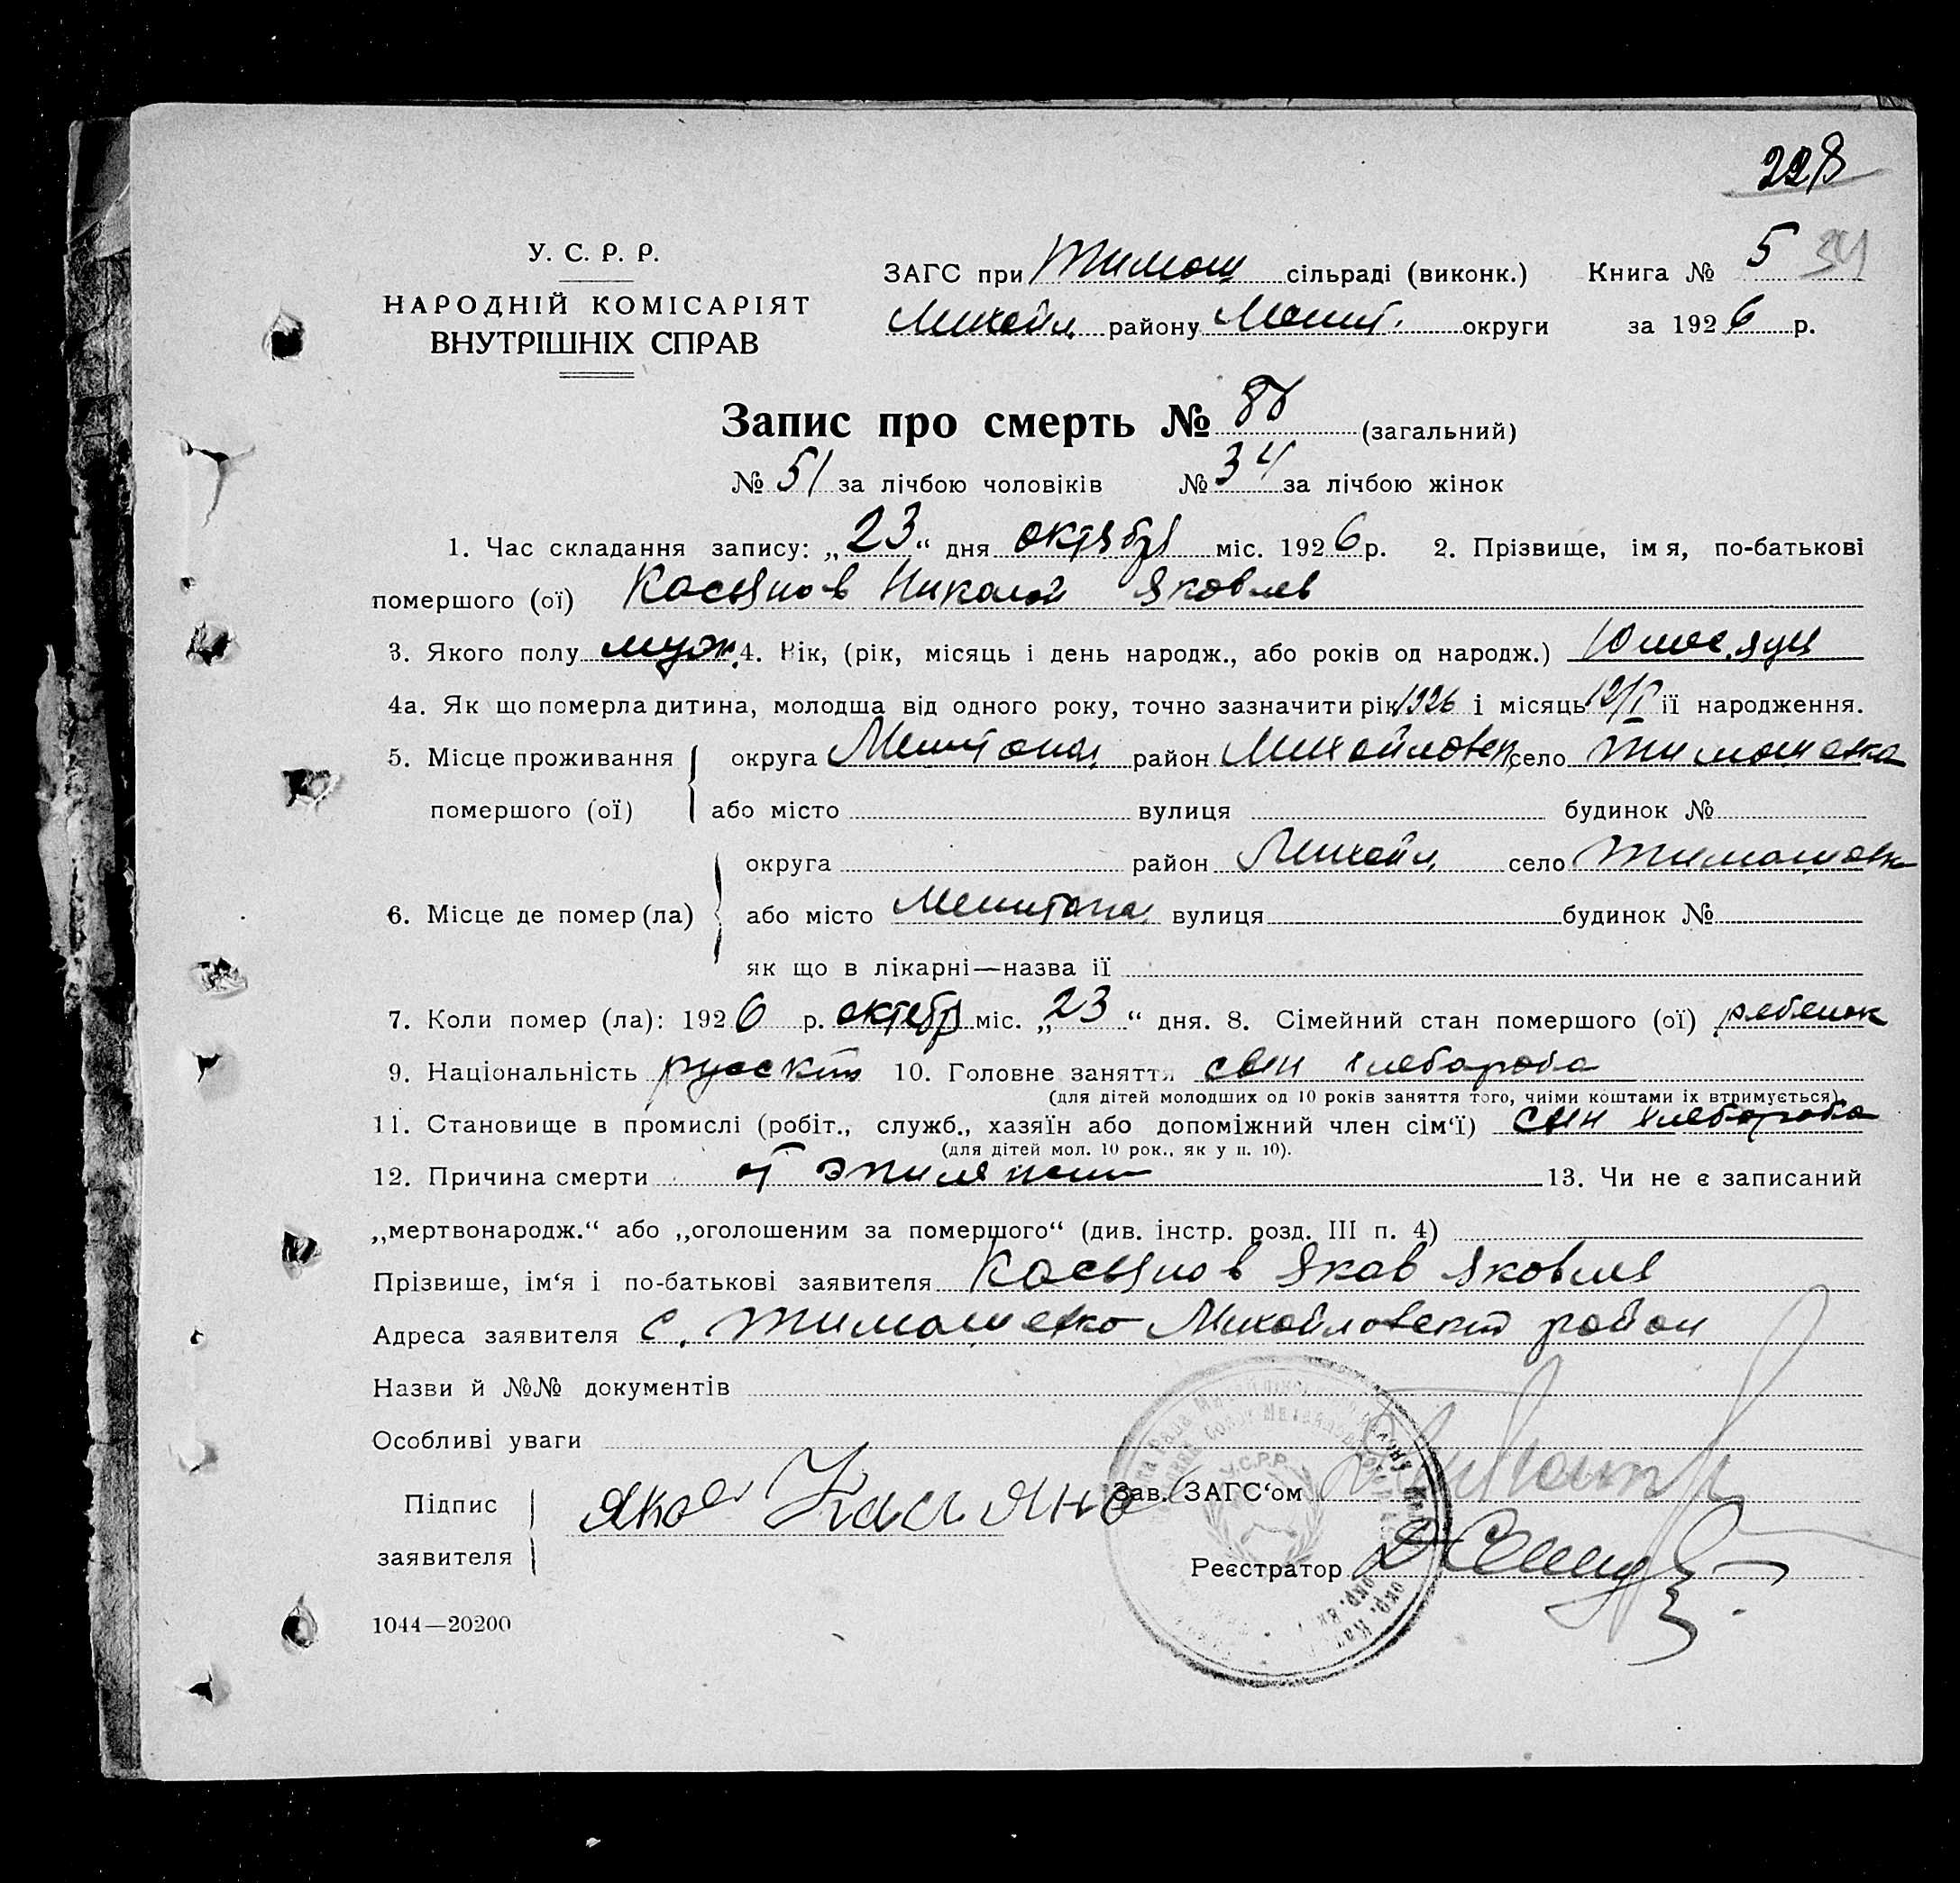 228
У. С. Р. Р.
НАРОДНІЙ КОМІСАРІЯТ
ВНУТРІШНІХ СПРАВ
ЗАГС при Тимош сільраді (виконк.) Книга № 5 34
Михайл району Мелит. округи за 1926 р.
Запис про смерть № (загальний)
№ 51 за лічбою чоловіків № 34 за лічбою жінок
1. Час складання запису: „23“ дня октября міс. 1926 р. 2. Прізвище, імя, по-батькові
помершого (ої) Касьянов Николай Яковлев
3. Якого полу муж. 4. Вік, (рік, місяць і день народж., або років од народж.) 10 месяцы
4а. Як що померла дитина, молодша від одного року, точно зазначити рік 1926 і місяць її народження.
5. Місце проживання округа Мелитопол район Михайловск село Тимошевка
помершого (ої) або місто вулиця будинок №
округа район Михайл село Тимошовк
6. Місце де помер (ла) або місто Мелитопол вулиця будинок №
як що в лікарні—назва її
7. Коли помер (ла): 1926 р. октебр міс. „23“ дня. 8. Сімейний стан помершого (ої) ребенок
9. Національність русский 10. Головне заняття сын хлебороба
(для дітей молодших од 10 років заняття того, чиїми коштами їх втримується)
11. Становище в промислі (робіт., служб., хазяїн або допоміжний член сім‘ї) сын хлебороба
(для дітей мол. 10 рок., як у п. 10).
12. Причина смерти от эпиляпсии 13. Чи не є записаний
„мертвонародж.“ або „оголошеним за помершого“ (див. інстр. розд. III п. 4)
Прізвище, ім‘я і по-батькові заявителя Касьянов Яков Яковлев
Адреса заявителя с. Тимошевко Михайловский район
Назви й №№ документів
Особливі уваги
Підпис Яков Касянов Зав. ЗАГС‘ом
заявителя
Реєстратор
У.С.Р.Р.
1044—20200